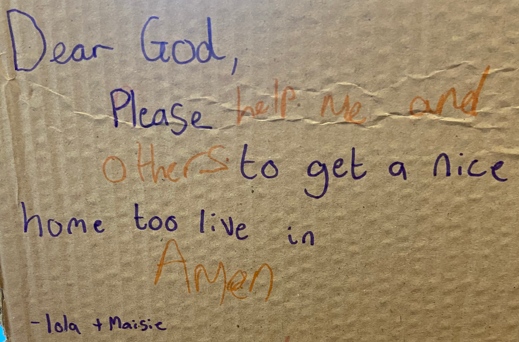 Dear God,
Please help me and
others to get a nice
home too live in
Amen
- lola + Maisie